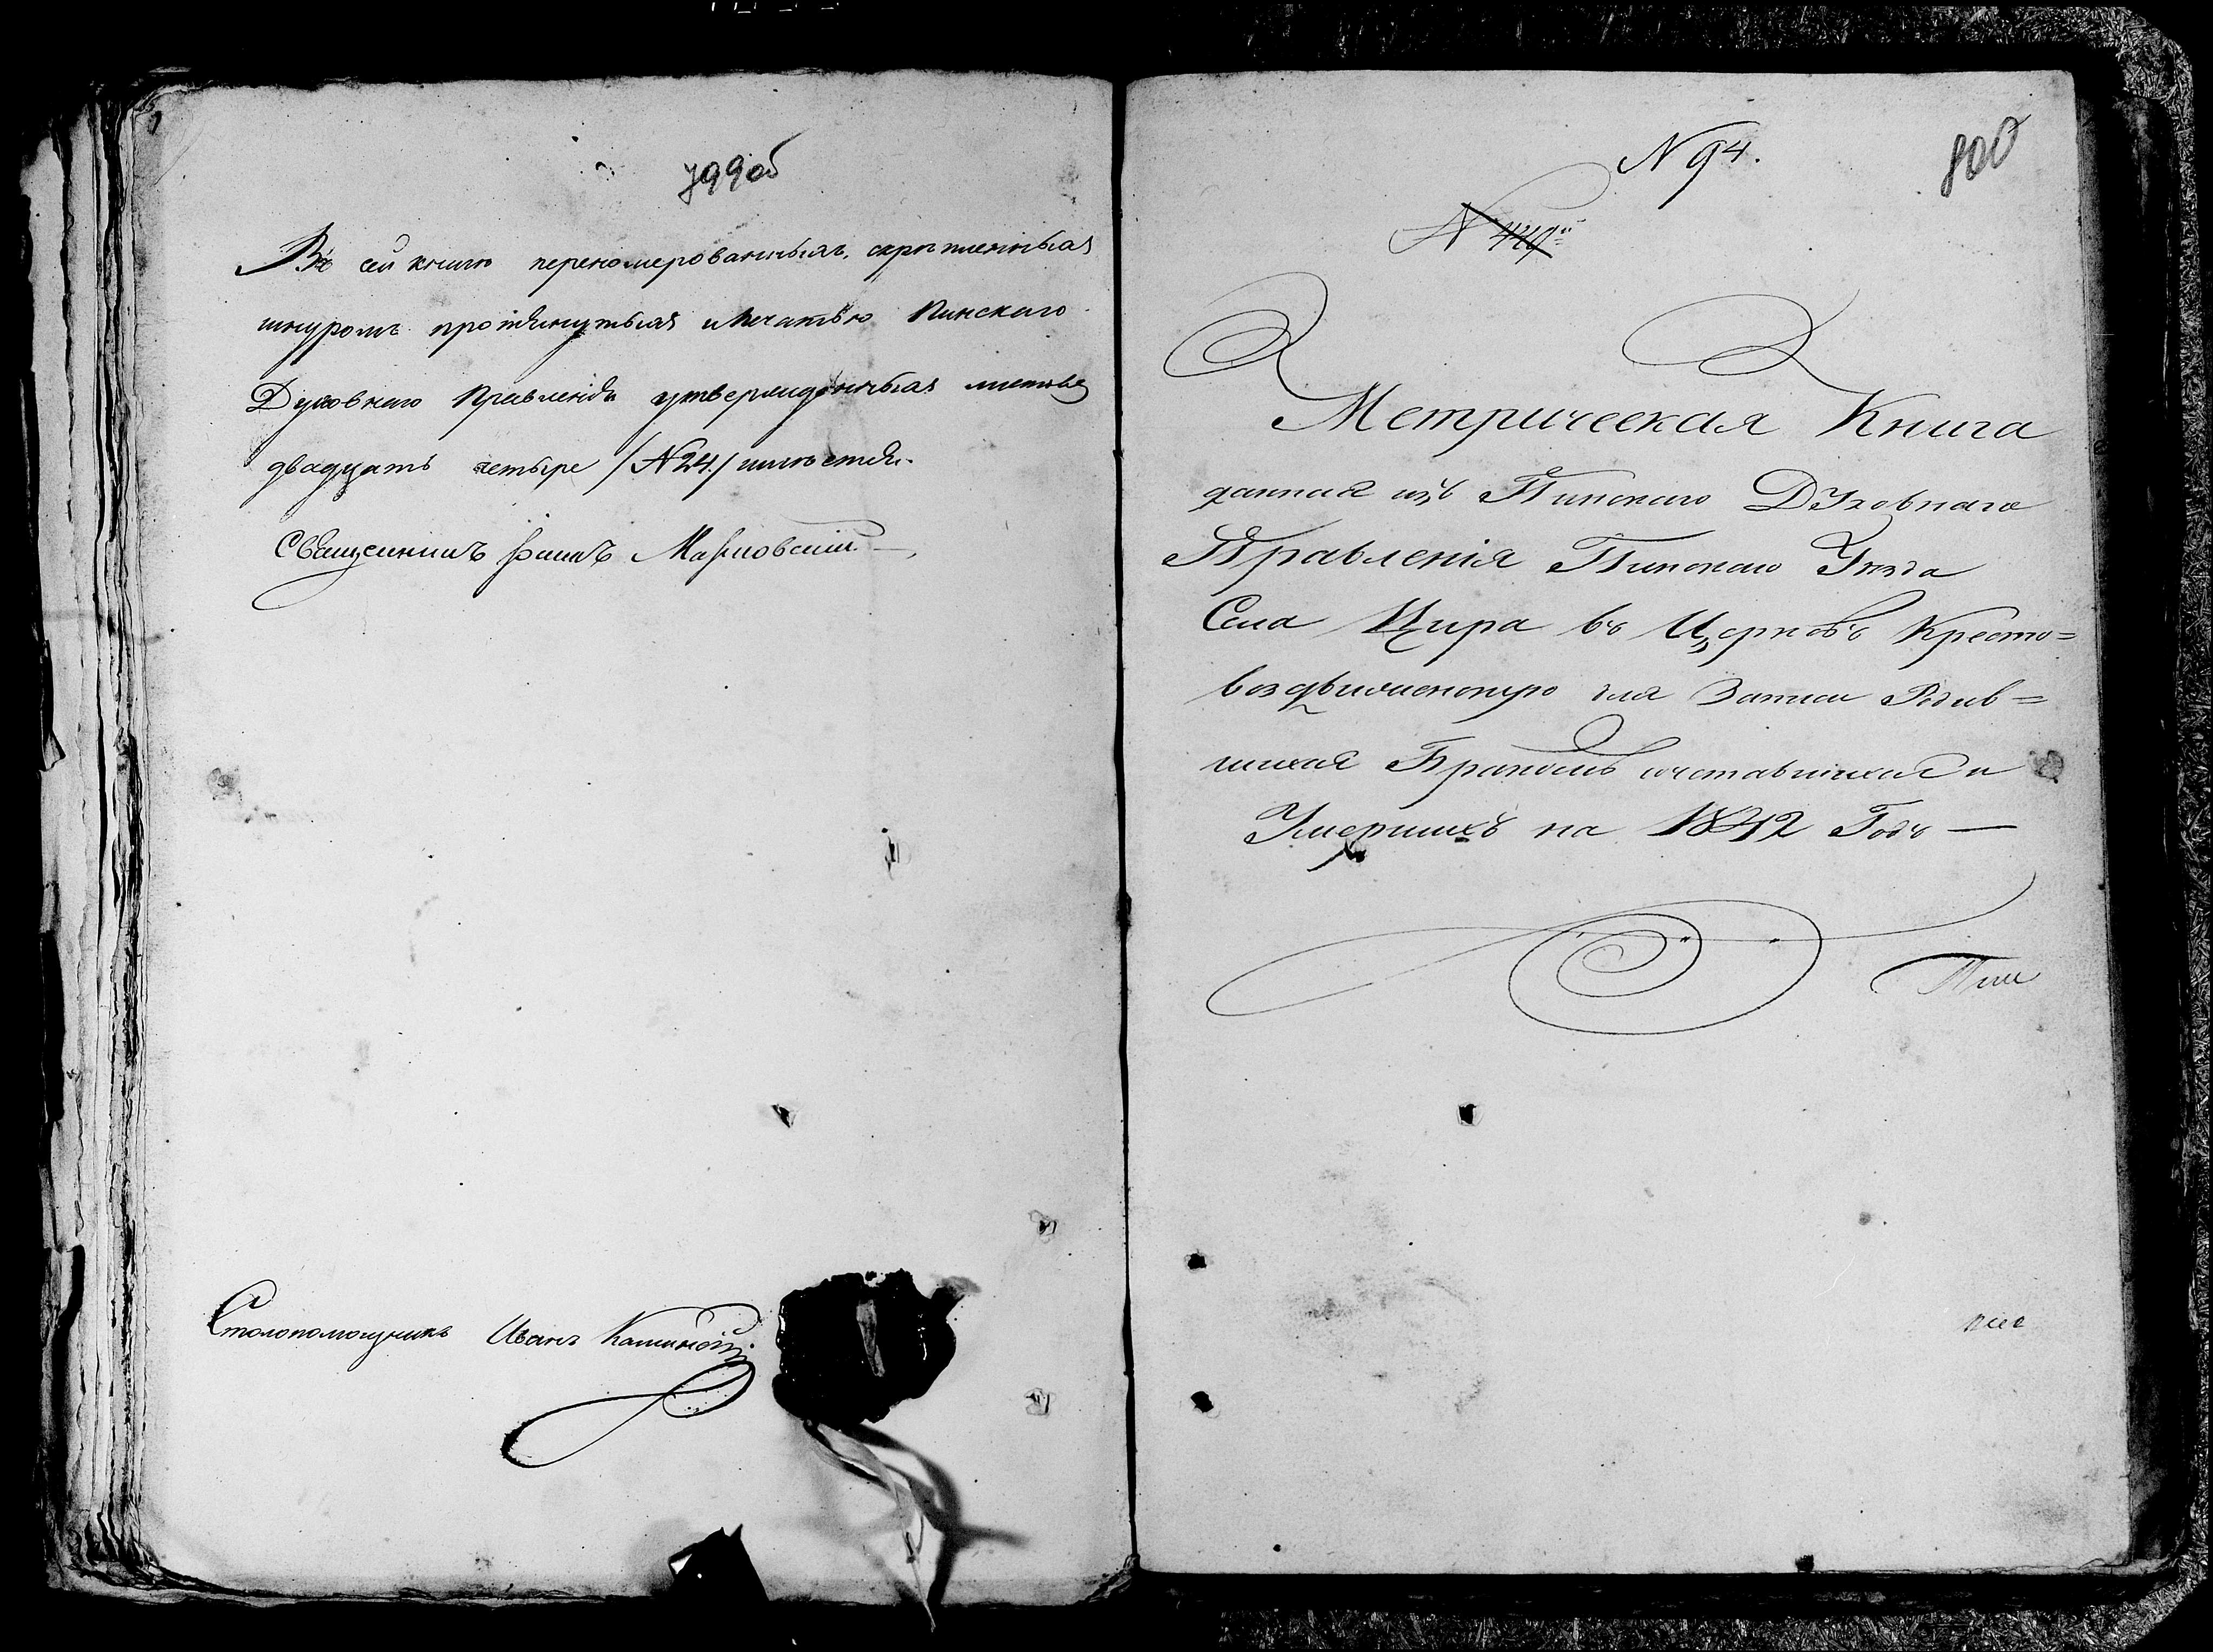 799об
Въ сей книгѣ переномерованныхъ, скрѣпленныхъ
шнуромъ протянутыхъ и печатью Пинскаго
Духовнаго Правленія утвержденныхъ листовъ
двадцать четыре /№ 24./ имѣется.
Священникъ
Столопомощникъ Иванъ
№ 94.
800
Метрическая Книга
данная изъ Пинскаго Духовнаго
Правленія Пинскаго Уѣзда
Села Цира въ Церковь Кресто=
воздвиженскую для Записи Родив=
шихся Бракомъ сочетавшихся и
Умершихъ на 1842 Годъ —